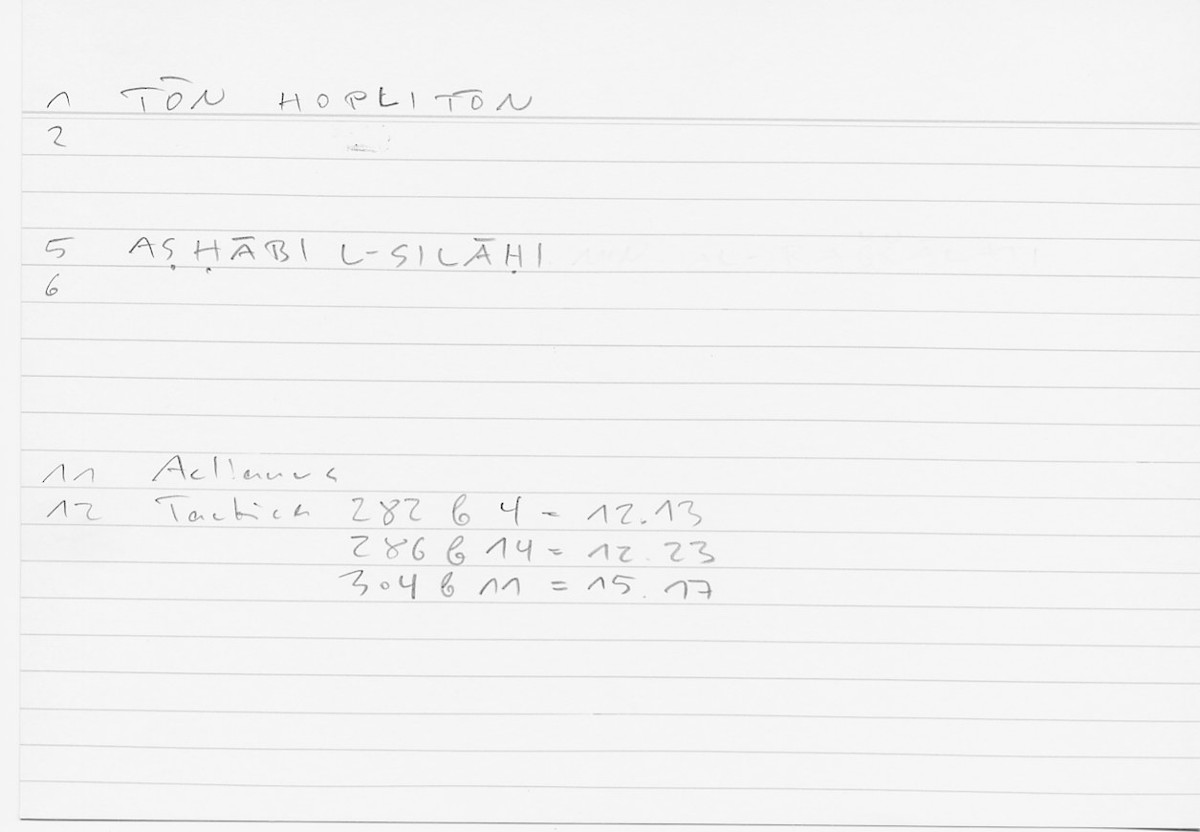 1 TŌN HOPLITON
2
5 AṢḤĀBI L-SILĀḤI
6
11 Aelianus
12 Tactica 282 b 4 = 12.13
286 b 14 = 12.23
304 b 11 = 15.17